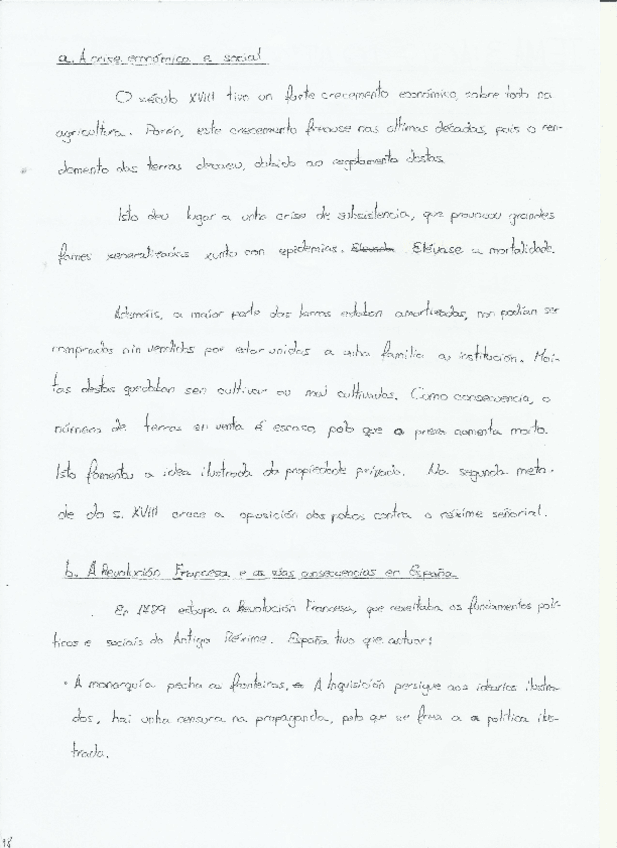 a. A crise económica e social
O século XVIII tivo un forte crecemento económico, sobre todo na
agricultura. Porén, este crecemento freouse nas últimas décadas, pois o ren-
damento das terras decreceu, debido ao regulamento destas.
Isto deu lugar a unha crise de subsistencia, que provocou grandes
fames xeneralizadas xunto con epidemias. Elévase a mortalidade.
Ademáis, a maior parte das terras estaban amortizadas, non podían ser
compradas nin vendidas por estar unidas a unha familia ou institución. Moi-
tas destas quedaban sen cultivar ou mal cultivadas. Como consecuencia, o
número de terras en venta é escaso, polo que o prezo aumenta moito.
Isto fomentou a idea ilustrada da propiedade privada. Na segunda meta-
de do s. XVIII crece a oposición dos pobos contra o réxime señorial.
b. A Revolución Francesa e as súas consecuencias en España
En 1789 estoupa a Revolución Francesa, que rexeitaba os fundamentos polí-
ticos e sociais do Antigo Réxime. España tivo que actuar:
• A monarquía pecha as fronteiras, A Inquisición persigue aos idearios ilustra-
dos, hai unha censura na propaganda, polo que se frea a política ilus-
trada.
18